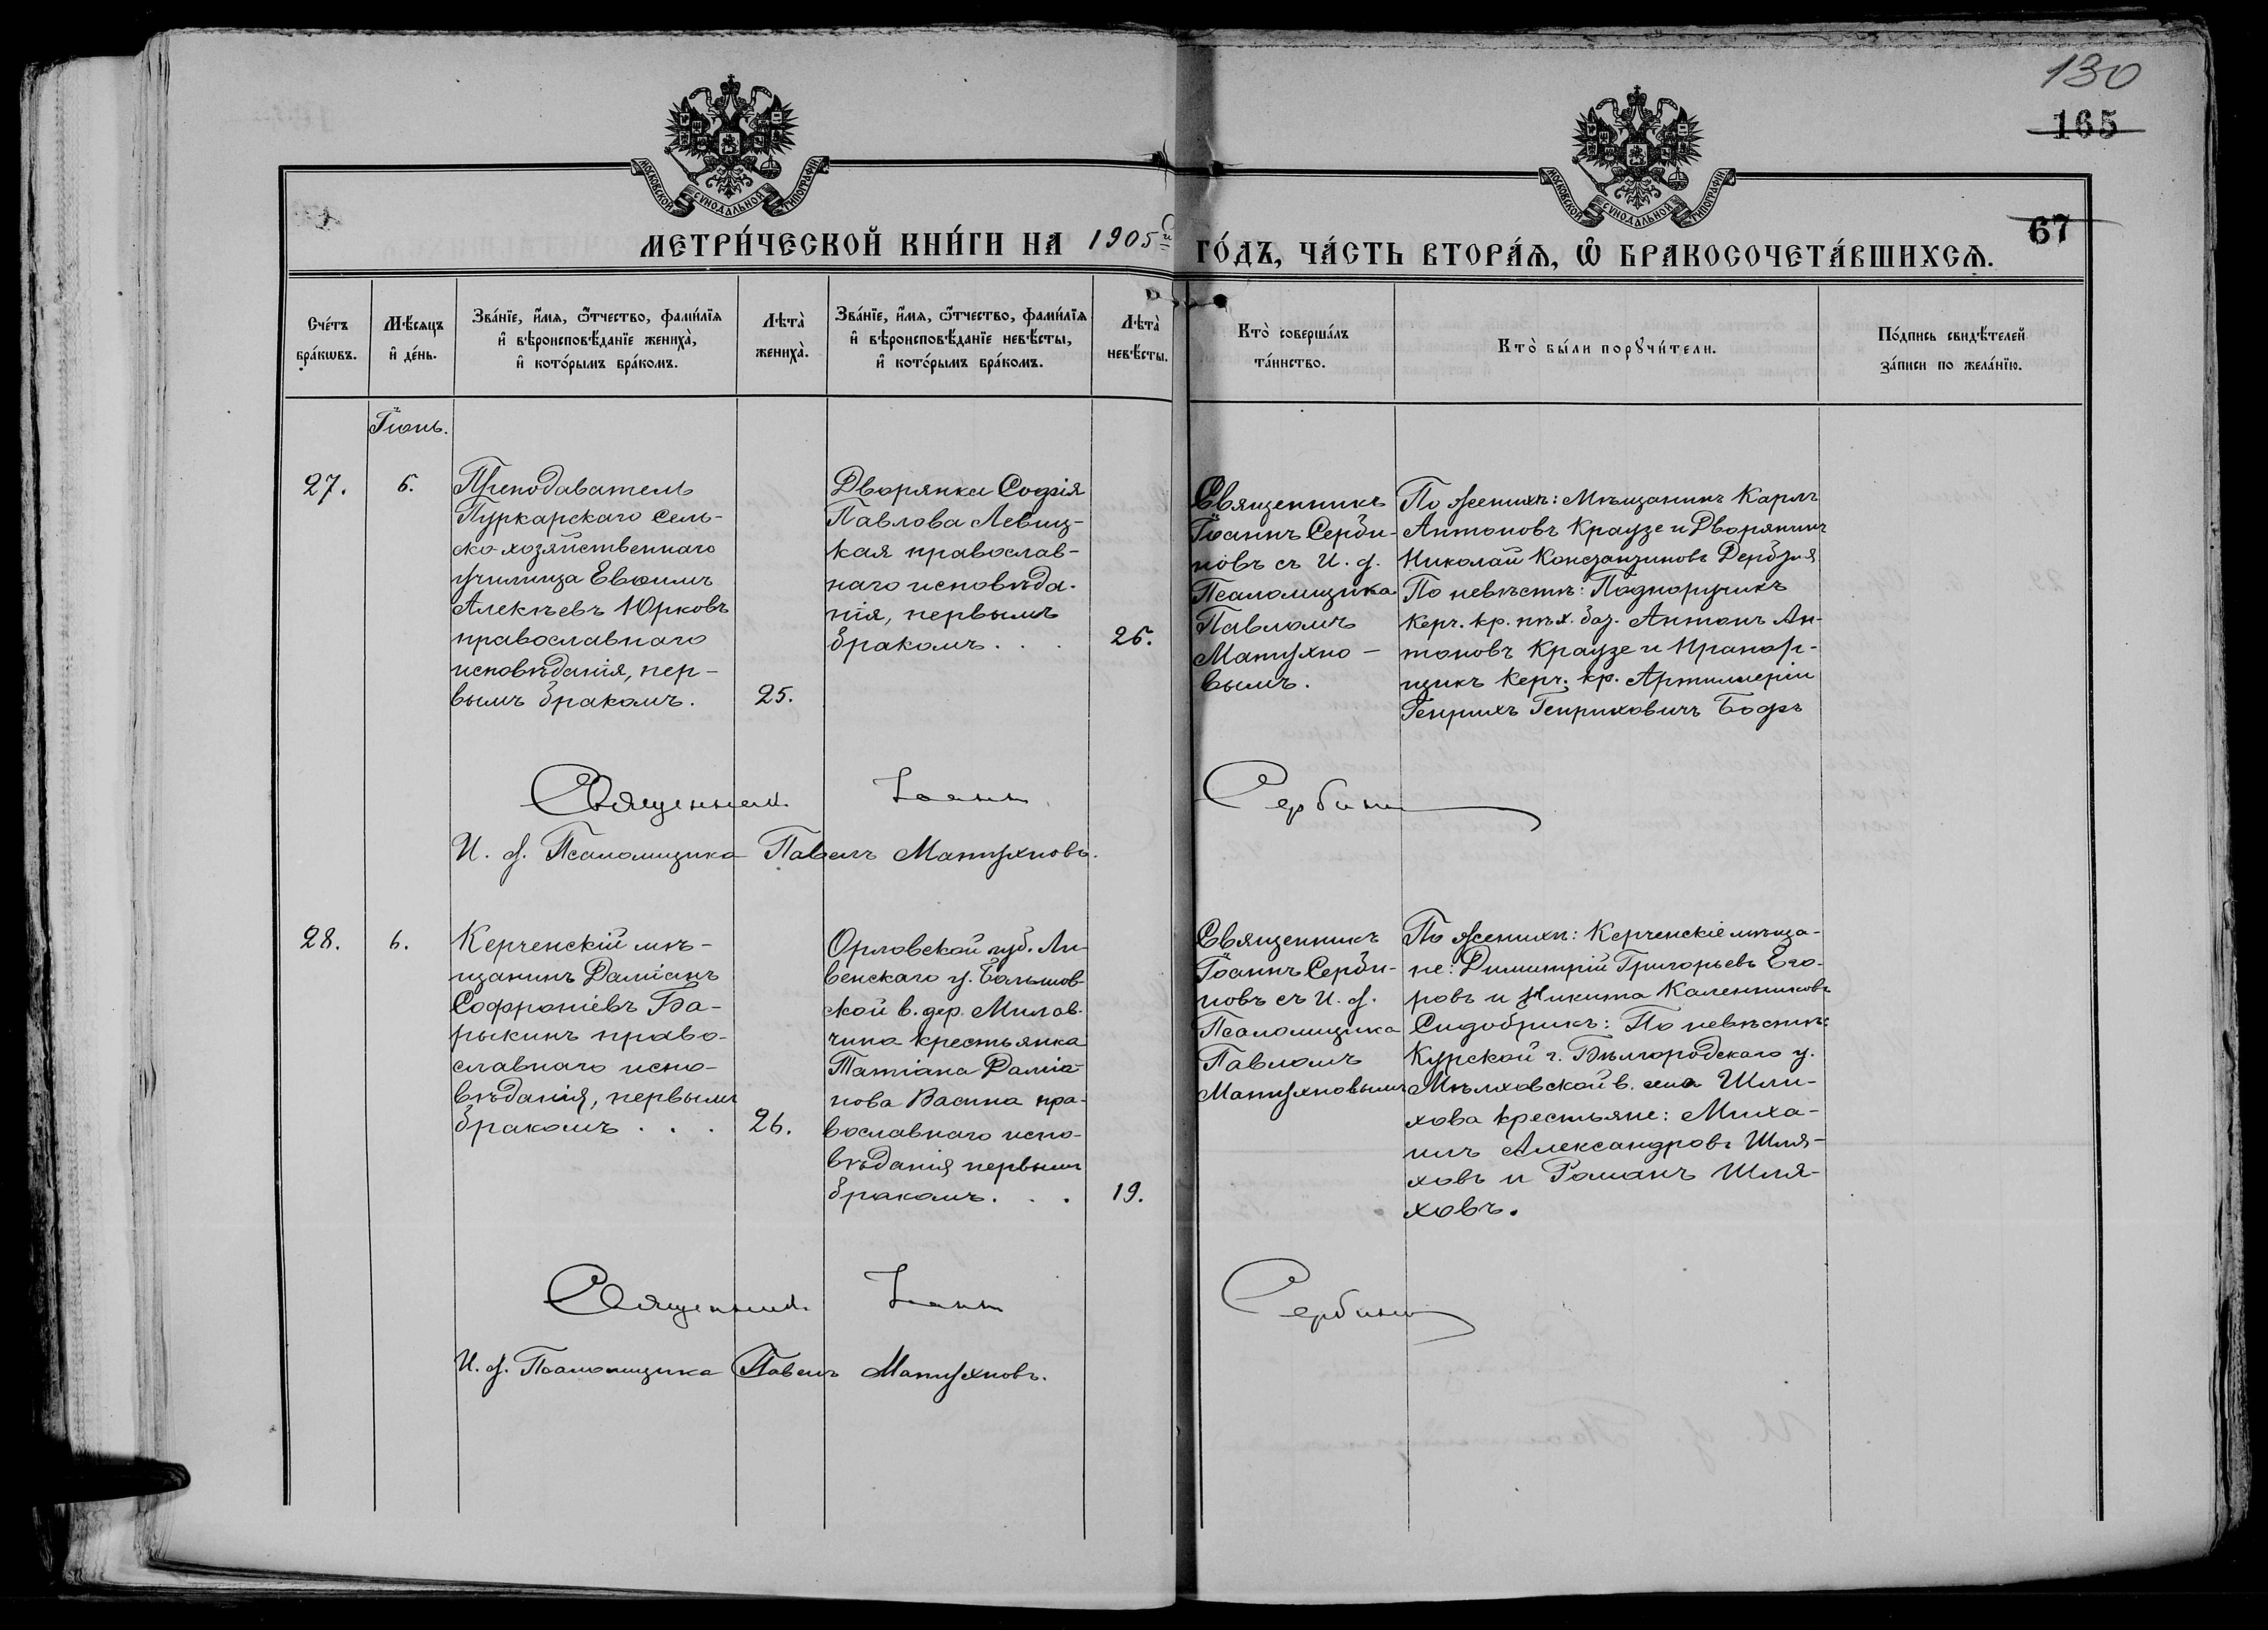 130
165
67
МОСКОВСКОЙ СѴНОДАЛЬНОЙ ТИПОГРАФІИ
МОСКОВСКОЙ СѴНОДАЛЬНОЙ ТИПОГРАФІИ
МЕТРИ́ЧЕСКОЙ КНИ́ГИ НА 1905й ГО́ДЪ, ЧА́СТЬ ВТОРА́Ѧ, Ѽ БРАКОСОЧЕТА́ВШИХСѦ.
Сче́тъ бра́кѡвъ.
Мѣ́сяцъ и҆ де́нь.
Зва́нїе, и҆́мя, ѻ҆́тчество, фами́лїя
и҆ вѣроисповѣ́данїе жениха̀,
и҆ кото́рымъ бра́комъ.
Лѣта̀ жениха̀.
Зва́нїе, и҆́мя, ѻ҆́тчество, фами́лїя
и҆ вѣроисповѣ́данїе невѣ́сты,
и҆ кото́рымъ бра́комъ.
Лѣта̀ невѣ́сты.
Кто̀ соверша́лъ
та́инство.
Кто̀ бы́ли порꙋчи́тели.
По́дпись свидѣ́телей
за́писи по жела́нїю.
Іюнь.
27.
5.
Преподаватель
Пуркарскаго сель-
ско-хозяйственнаго
училища Евѳимъ
Алексѣевъ Юрковъ
православнаго
исповѣданія, пер-
вымъ бракомъ.
25.
Дворянка Софія
Павлова Левиц-
кая православ-
наго исповѣда-
нія, первымъ
бракомъ. . .
25.
Священникъ
Іоаннъ Серби-
новъ съ И. д.
Псаломщика
Павломъ
Матухно-
вымъ.
По женихѣ: Мѣщанинъ Карлъ
Антоновъ Краузе и Дворянинъ
Николай Константиновъ
По невѣстѣ: Подпоручикъ
Керч. кр. пѣх. баг. Антонъ Ан-
тоновъ Краузе и Прапор-
щикъ Керч. кр. Артиллеріи
Генрихъ Генриховичъ
Священникъ Іоаннъ Сербиновъ
И. д. Псаломщика Павелъ Матухновъ.
28.
6.
Керченскій мѣ-
щанинъ Даміанъ
Софроніевъ Ба-
рыкинъ право-
славнаго испо-
вѣданія, первымъ
бракомъ . . .
26.
Орловской губ. Ли-
венскаго у. Большов-
ской в. дер. Милав-
чина крестьянка
Татіана Даміа-
нова Васина пра-
вославнаго испо-
вѣданія первымъ
бракомъ. . .
19.
Священникъ
Іоаннъ Серби-
новъ съ И. д.
Псаломщика
Павломъ
Матухновымъ
По женихѣ: Керченскіе мѣща-
не: Димитрій Григорьевъ Его-
ровъ и Никита Каленниковъ
Сидобрикъ: По невѣстѣ:
Курской г. Бѣлгородскаго у.
в. села Шли-
хова крестьяне: Миха-
илъ Александровъ Шля-
ховъ и Романъ Шля-
ховъ.
Священникъ Іоаннъ Сербиновъ
И. д. Псаломщика Павелъ Матухновъ.